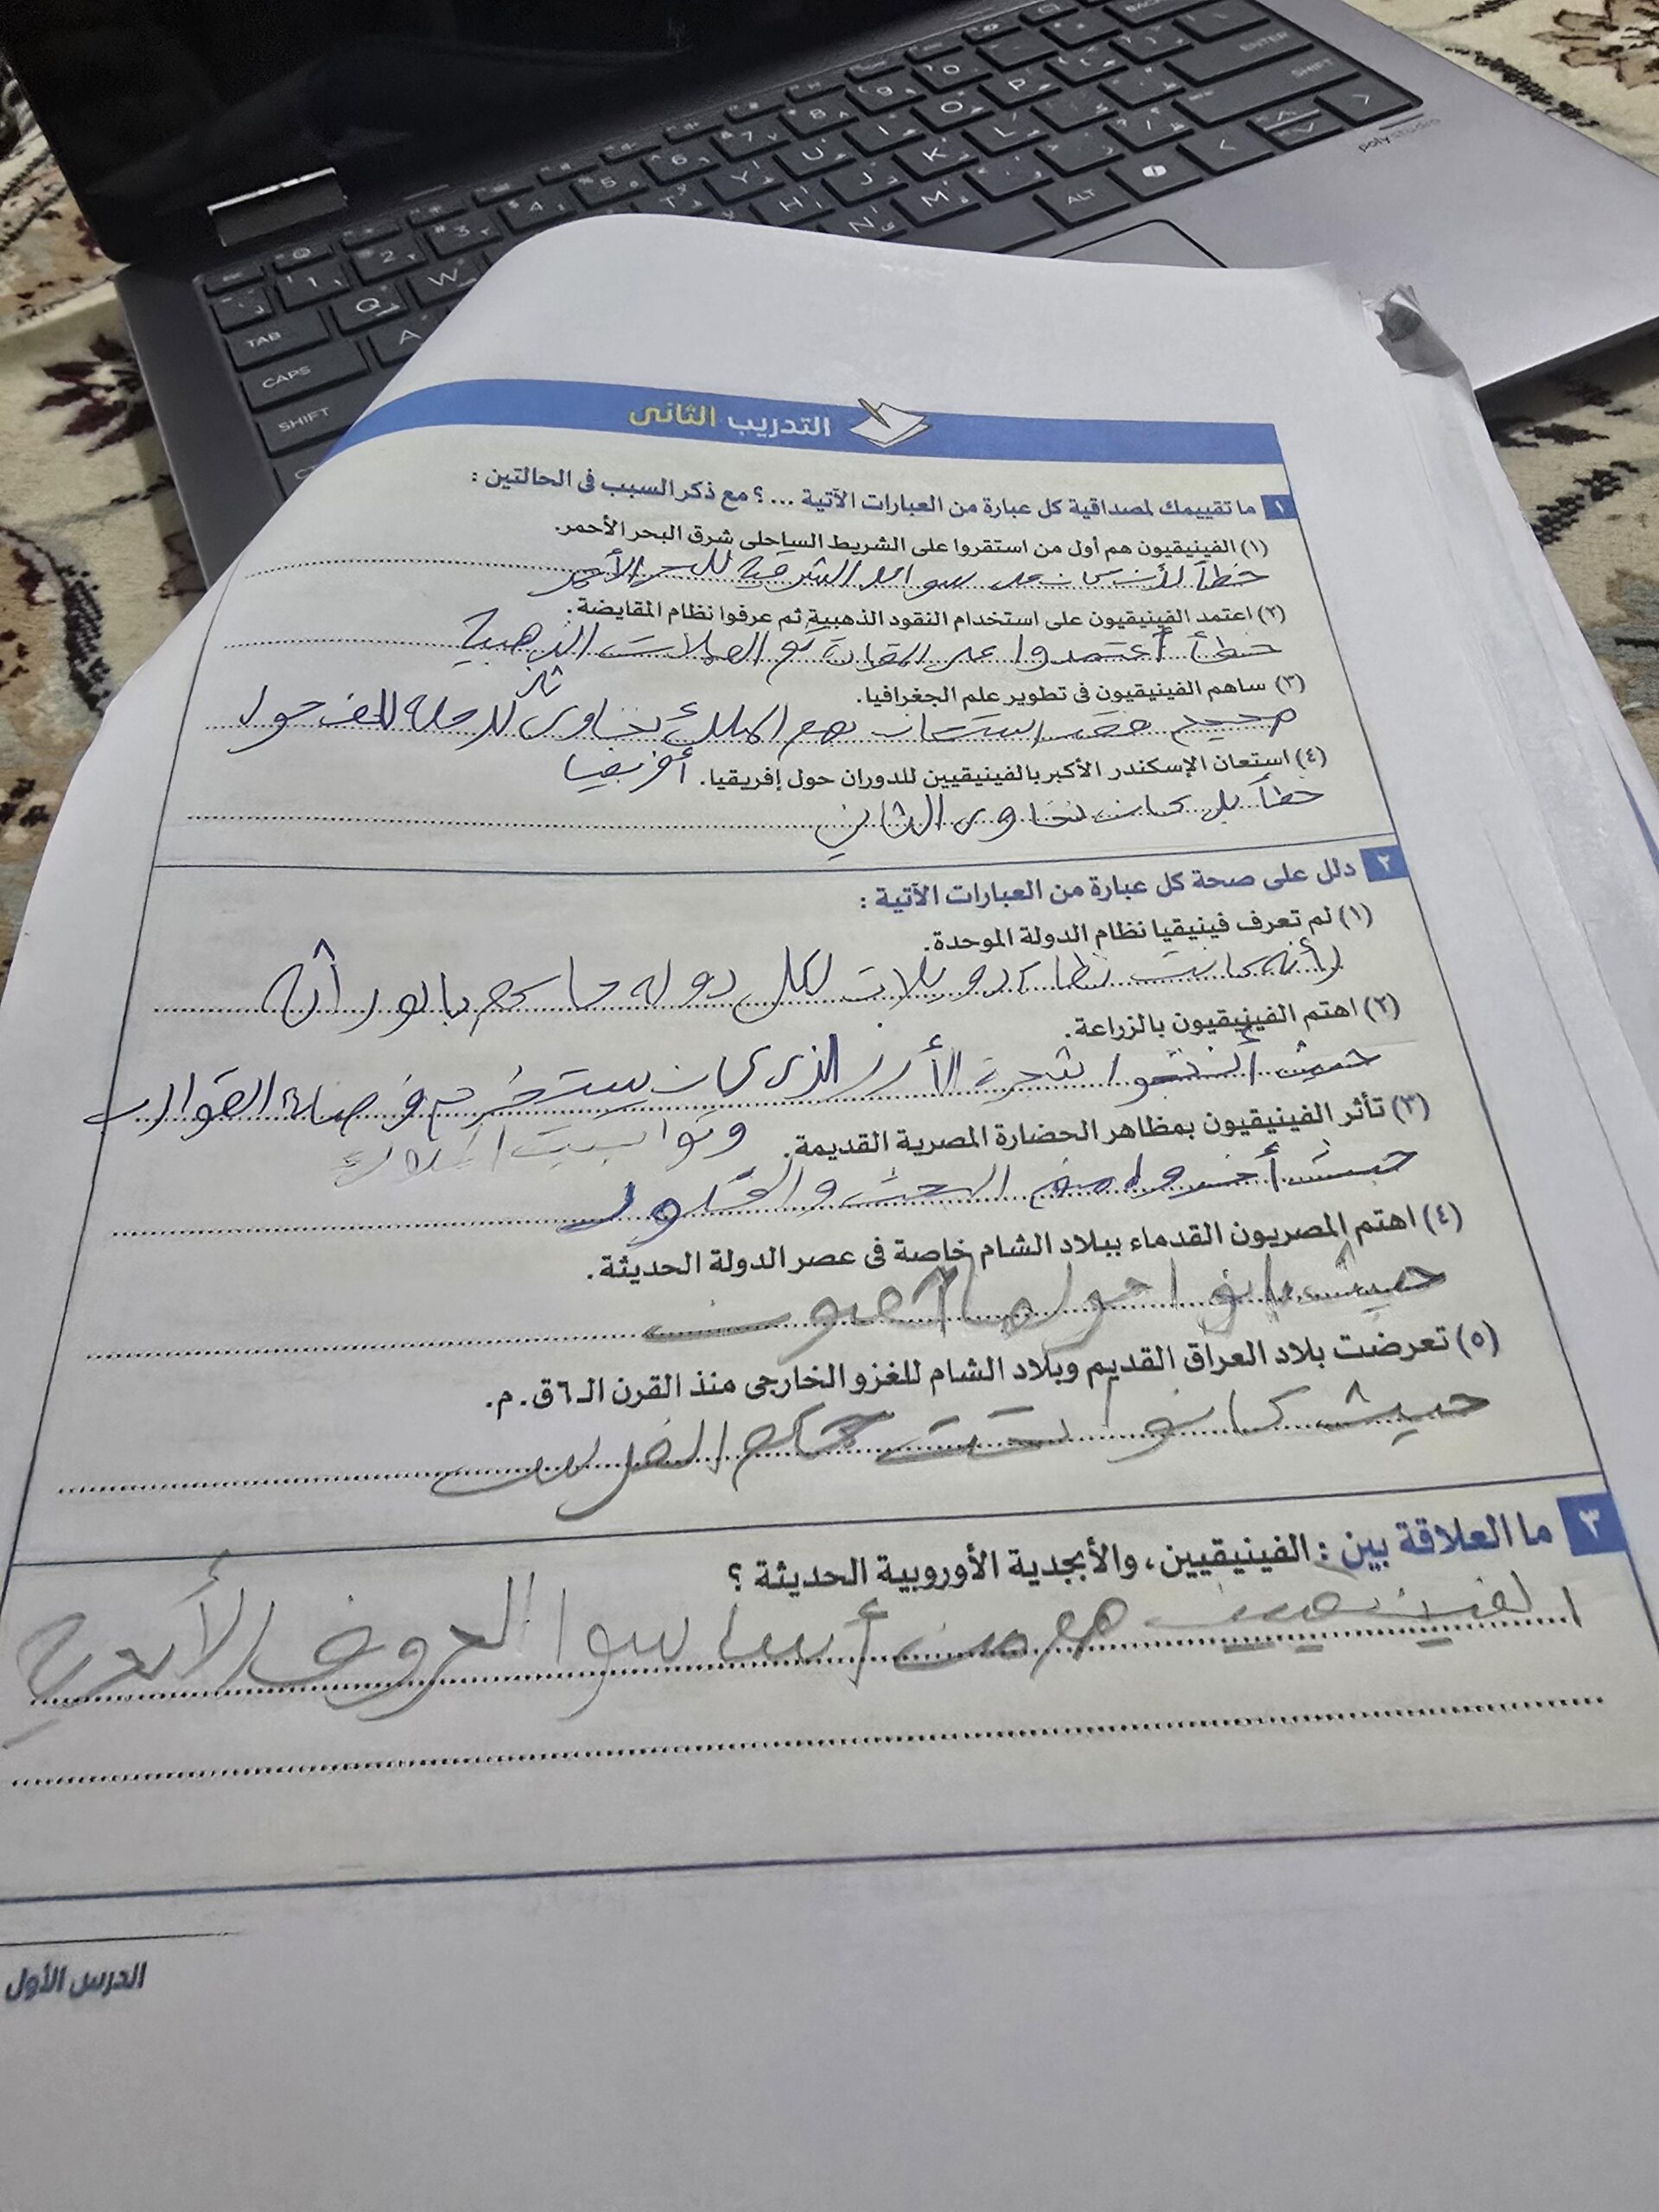 التدريب الثانى
١ ما تقييمك لمصداقية كل عبارة من العبارات الآتية ... ؟ مع ذكر السبب فى الحالتين :
(١) الفينيقيون هم أول من استقروا على الشريط الساحلى شرق البحر الأحمر.
خطأ لأن كان على سواحل الشرقية للبحر الأحمر
(٢) اعتمد الفينيقيون على استخدام النقود الذهبية ثم عرفوا نظام المقايضة.
خطأ أعتمدوا على ثم العملات الذهبية
(٣) ساهم الفينيقيون فى تطوير علم الجغرافيا.
صحيح فقد استعان بهم الملك نخاوى للرحلة للف حول
أفريقيا
(٤) استعان الإسكندر الأكبر بالفينيقيين للدوران حول إفريقيا.
خطأ بل كان نخاوى الثاني
٢ دلل على صحة كل عبارة من العبارات الآتية :
(١) لم تعرف فينيقيا نظام الدولة الموحدة.
لأنه كانت نظام دويلات لكل دوله حاكم بالوراثه
(٢) اهتم الفينيقيون بالزراعة.
حيث أنتجوا شجرة الأرز الذى كان يستخدم فى صناعة القوارب
وتوابيت الملوك
(٣) تأثر الفينيقيون بمظاهر الحضارة المصرية القديمة.
حيث أخذوا منهم البعث والخلود
(٤) اهتم المصريون القدماء ببلاد الشام خاصة فى عصر الدولة الحديثة.
حيث
(٥) تعرضت بلاد العراق القديم وبلاد الشام للغزو الخارجى منذ القرن الـ ٦ ق . م.
حيث كانوا تحت حكم الفرس
٣ ما العلاقة بين : الفينيقيين، والأبجدية الأوروبية الحديثة ؟
الفينيقيين هم من أساسوا الحروف الأبجدية
الدرس الأول
TAB
CAPS
SHIFT
ENTER
SHIFT
ALT
polystudio